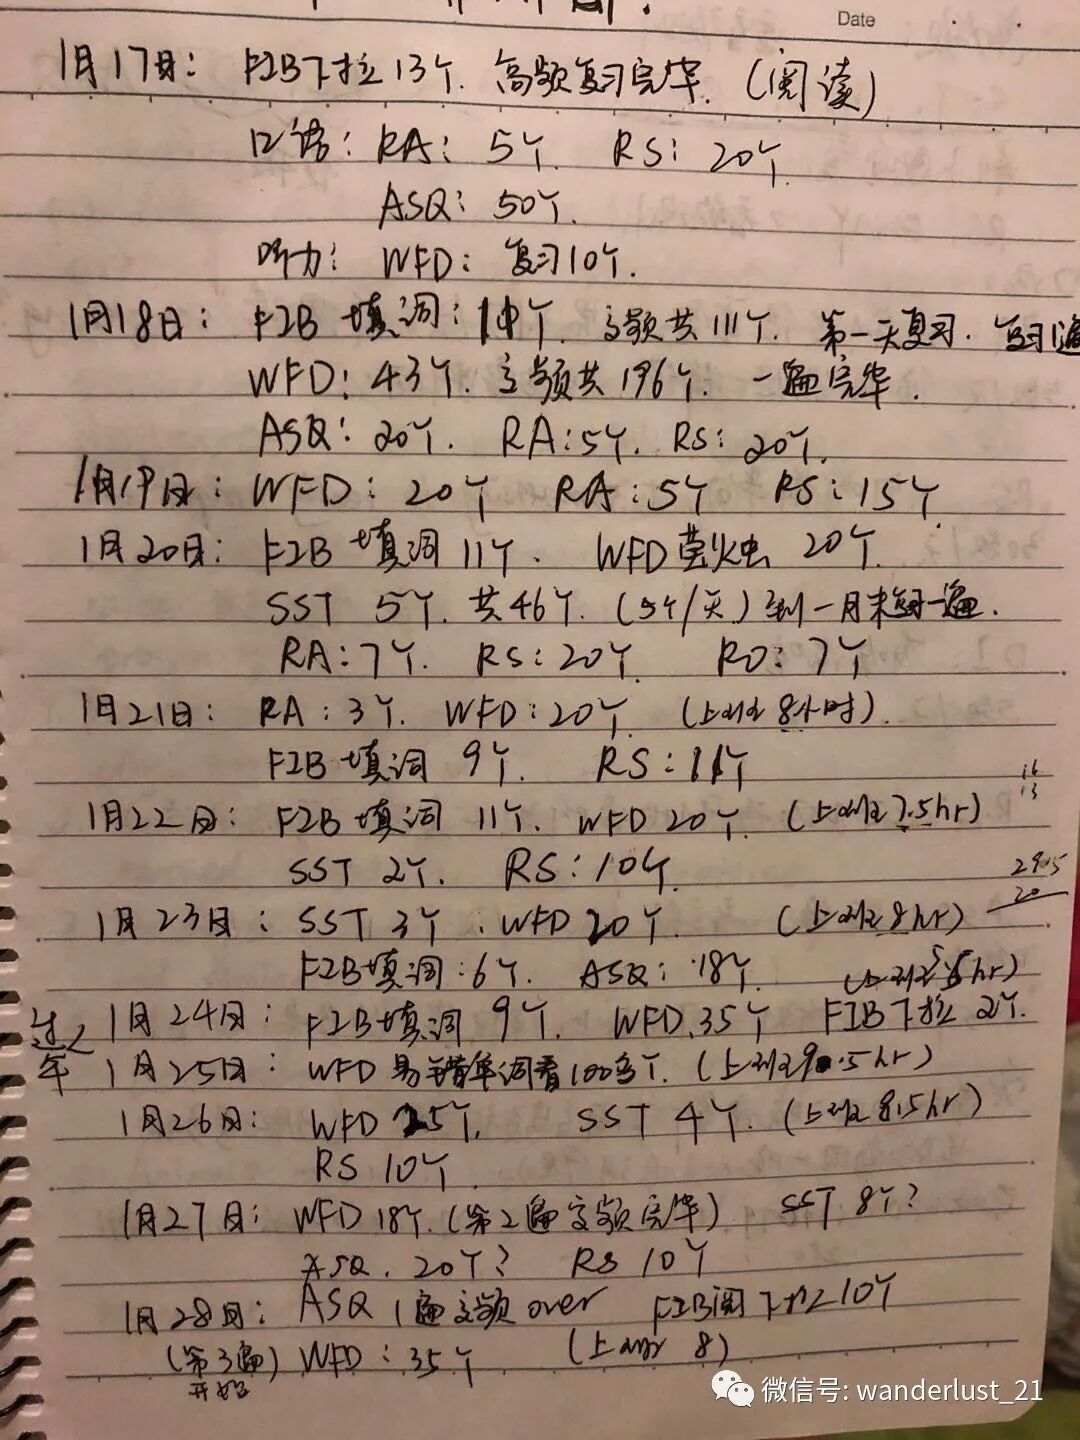 Date
1月17日: FIB下拉13个. 高频复习完毕. (阅读)
口语: RA: 5个 RS: 20个.
ASQ: 50个.
听力: WFD: 复习10个.
1月18日: FIB 填词: 11个. 高频共111个. 第一天复习. 复习1遍
WFD: 43个. 高频共196个. 一遍完毕.
ASQ: 20个. RA: 5个. RS: 20个.
1月19日: WFD: 20个 RA: 5个 RS: 15个.
1月20日: FIB 填词 11个. WFD萤火虫 20个.
SST 5个. 共46个. (5个/天) 到一月末复习一遍.
RA: 7个. RS: 20个. RO: 7个
1月21日: RA: 3个. WFD: 20个. (上班 8小时).
FIB 填词 9个. RS: 11个
16
13
1月22日: FIB 填词 11个. WFD 20个. (上班 7.5hr)
SST 2个. RS: 10个.
29.5
20
1月23日: SST 3个. WFD 20个. (上班 8hr)
FIB填词: 6个. ASQ: 18个. (上班 5.5hr)
过年
1月24日: FIB填词 9个. WFD 35个 FIB下拉 2个.
1月25日: WFD 易错单词看100多个. (上班9.5hr)
1月26日: WFD 25个. SST 4个. (上班 8.5hr)
RS 10个
1月27日: WFD 18个. (第2遍高频完毕) SST 8个?
ASQ. 20个? RS 10个
1月28日: ASQ 1遍高频over FIB阅下拉10个
(第3遍开始) WFD: 35个 (上班 8)
微信号: wanderlust_21